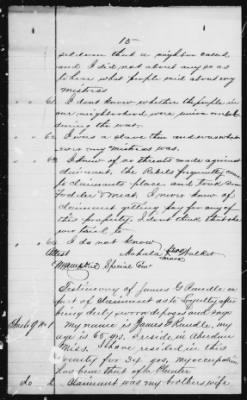 15
seldom that a neighbor called
and I did not about any so as
to hear what people said about my
mistress
" " 61 I dont know whether the people in
our neighborhood were union or rebels
during the war.
" " 62 I was a slave then and was where
ever my mistress was.
" " 63 I knew of no threats made against
claimant, the Rebels frequently came
to claimants place and took some
Fodder & meat. I never knew of
claimant getting pay for any of
this property. I dont think that she
ever tried to
" " 65 I do not know
Attest Mahala her Walker
mark
Special Com
Testimony of James G Randle a
part of Claimant as to loyalty after
being duly sworn deposes and says
My name is James G Randle, my
age is 65 yrs. I reside in Aberdeen
Miss. I have resided in this
vicinity for 34 yrs, my occupation
has been that of a Planter
do 2 Claimant was my brothers wife